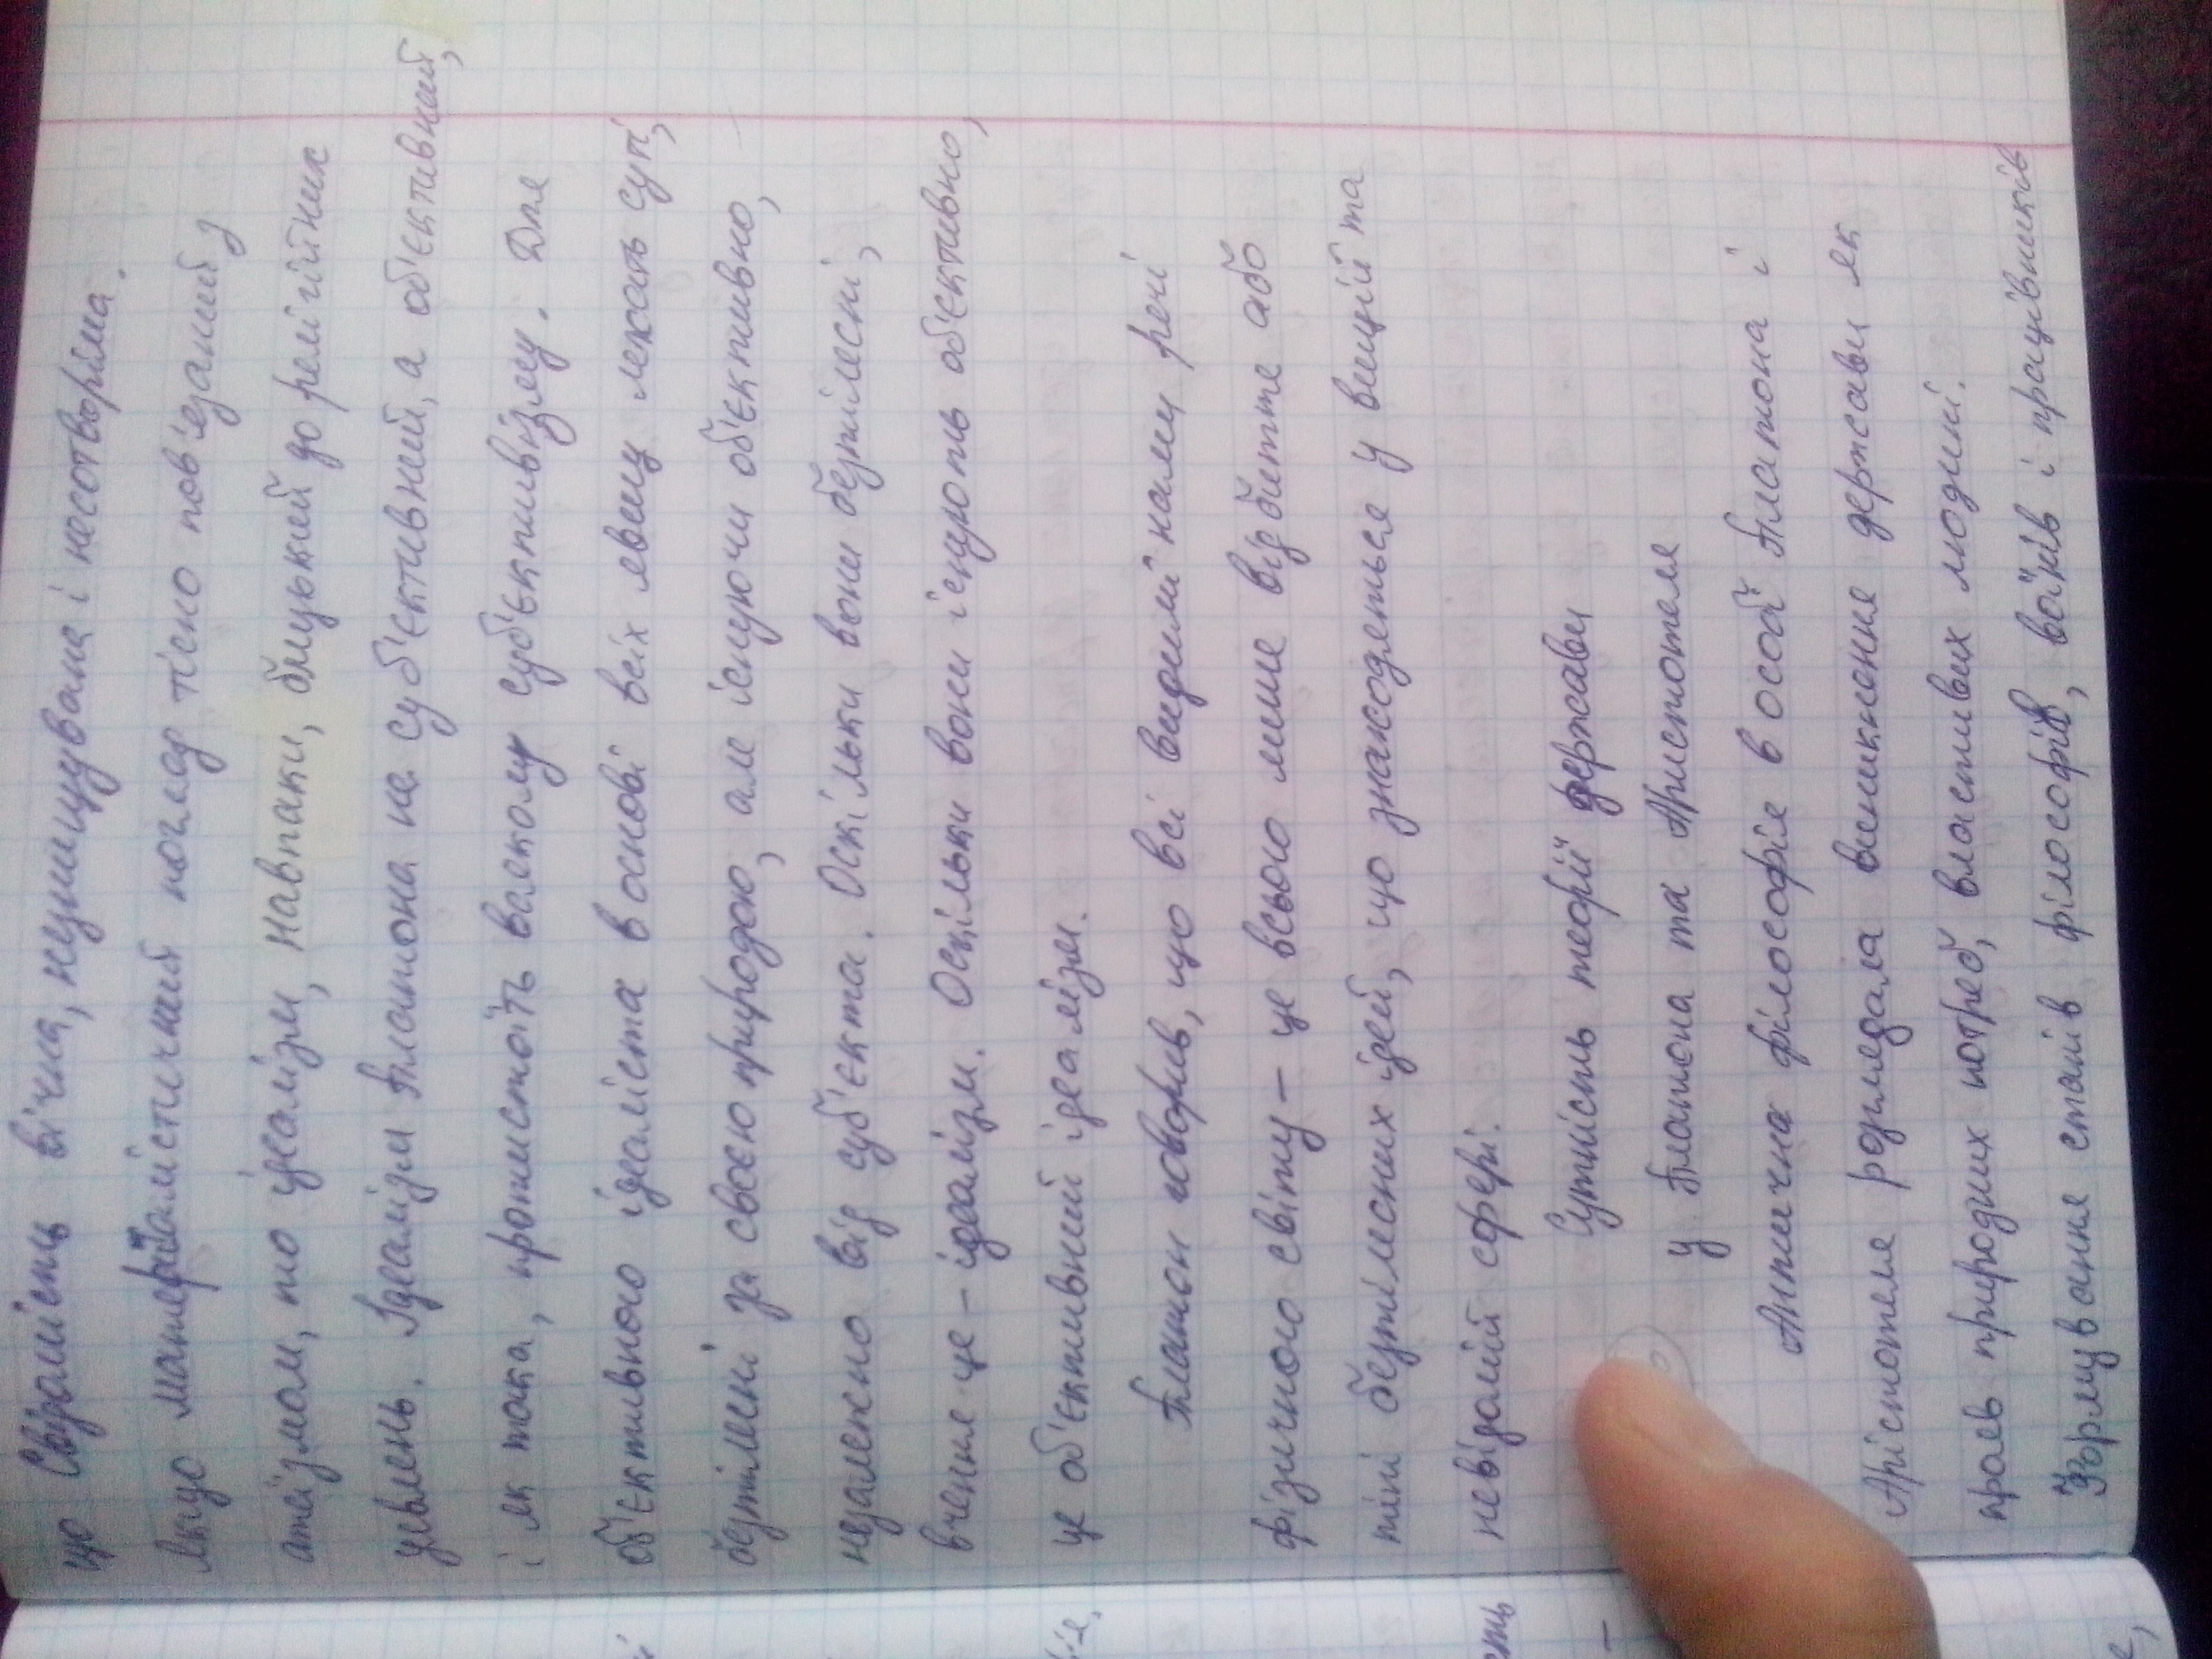 що Свідомість вічна, незнищувана і несотворіма.
Якщо матеріалістичний погляд тісно пов'язаний з
атеїзмом, то ідеалізм, навпаки, близький до релігійних
уявлень. Ідеалізм Платона не суб'єктивний, а об'єктивний,
і як така, протистоїть всякому суб'єктивізму. Для
об'єктивного ідеаліста в основі всіх явищ лежать суті,
безтілесні за своєю природою, але існуючи об'єктивно,
незалежно від суб'єкта. Оскільки вони безтілесні,
вчення це – ідеалізм. Оскільки вони існують об'єктивно,
це об'єктивний ідеалізм.
Платон говорив, що всі видимі нами речі
фізичного світу – це всього лише відбиття або
тіні безтілесних ідей, що знаходяться у вищій та
невідомій сфері.
Сутність теорії держави
у Платона та Аристотеля
Антична філософія в особі Платона і
Арістотеля розглядала виникнення держави як
прояв природних потреб, властивих людині.
Формування станів філософів, воїнів і працівників